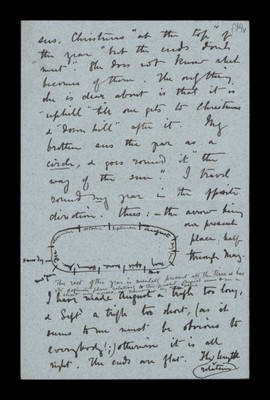 sees Christmas "at the top" of
the year "but the ends don't
meet". She does not know what
becomes of them. The only thing
she is clear about is that it is
"uphill" till one gets to Christmas
& "down hill" after it. My
brother sees the year as a
circle, & goes round it "the
way of the sun". I travel
round my year in the opposite
direction. Thus: - the arrow being
our present
place, half
through May.
August
The rest of the year is
I have made August a trifle too long,
& Sept a trifle too short, (as it
seems to me must be obvious to
everybody!;) otherwise it is all
right. The ends are flat. The lengths
relative